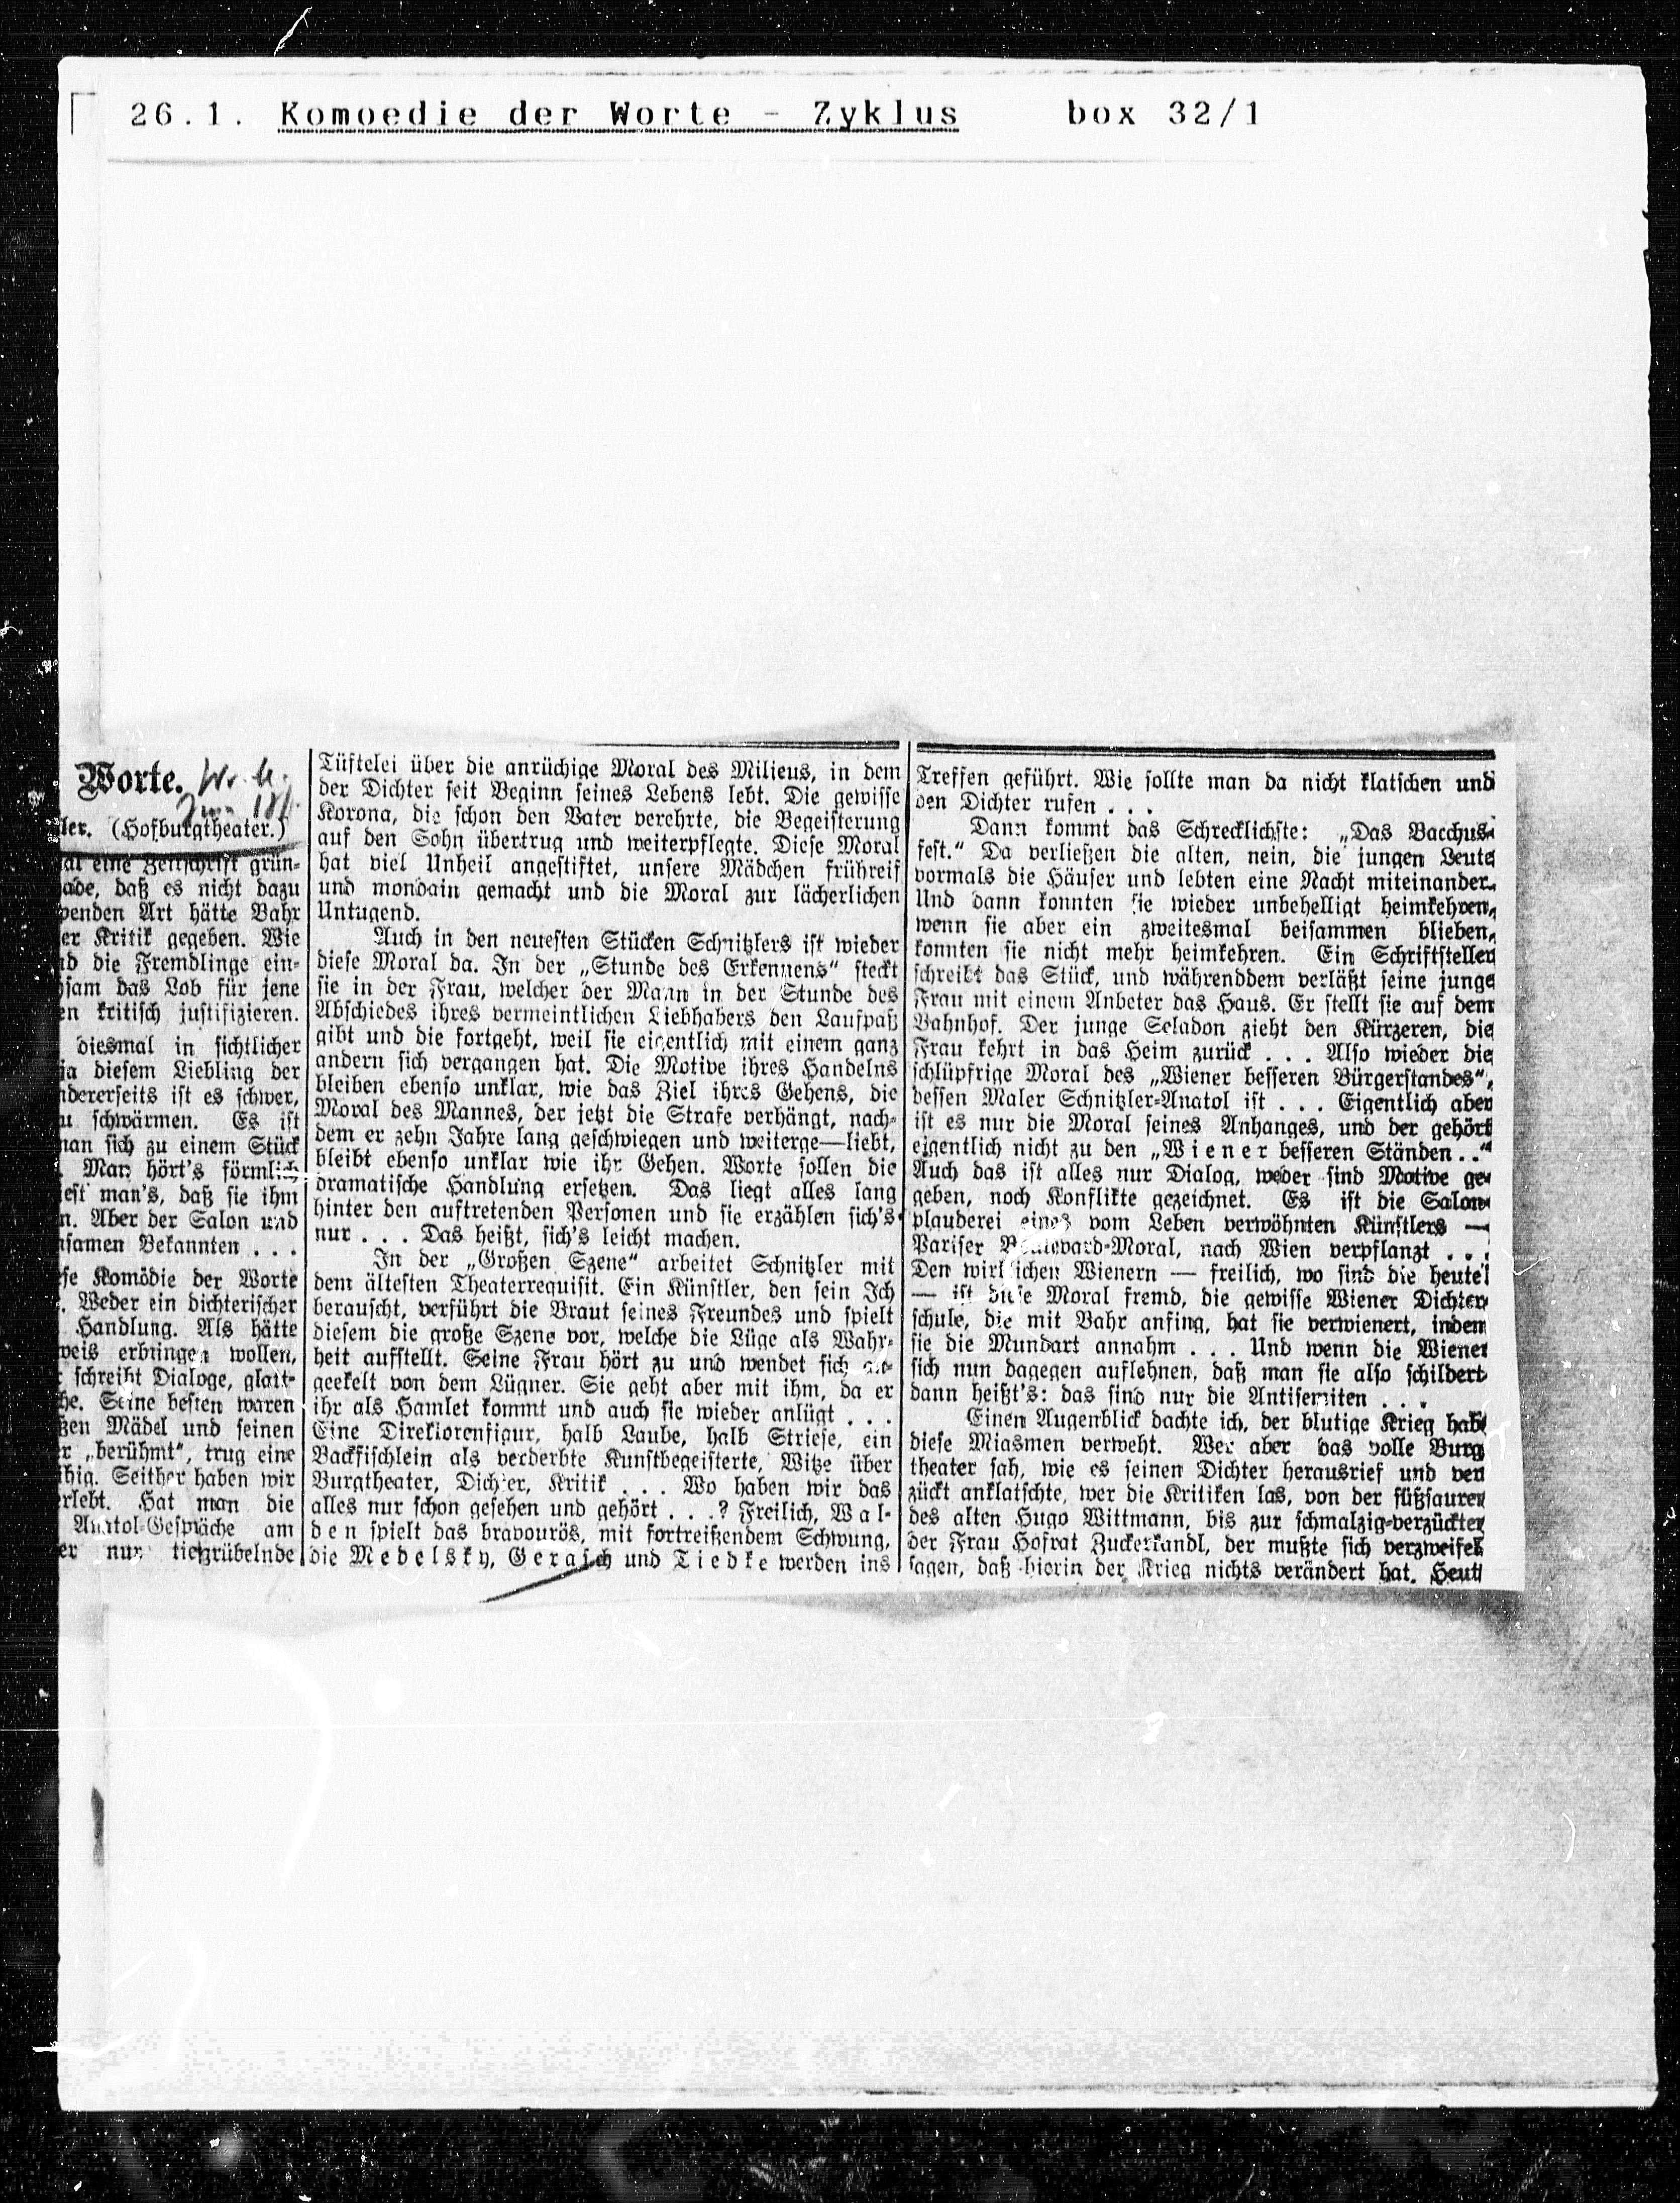 26.1. Komoedie der Worte - Zyklus box 32/1
Worte.
ler. (Hofburgtheater.)
al eine Zeitschrift grün-
ade, daß es nicht dazu
penden Art hätte Bahr
er Kritik gegeben. Wie
nd die Fremdlinge ein-
sam das Lob für jene
en kritisch justifizieren.
diesmal in sichtlicher
ja diesem Liebling der
ndererseits ist es schwer,
u schwärmen. Es ist
man sich zu einem Stück
Man hört's förmlich
iest man's, daß sie ihm
n. Aber der Salon und
nsamen Bekannten . . .
se Komödie der Worte
. Weder ein dichterischer
Handlung. Als hätte
weis erbringen wollen,
schreibt Dialoge, glatt-
he. Seine besten waren
ßen Mädel und seinen
r „berühmt", trug eine
ihig. Seither haben wir
erlebt. Hat man die
Anatol-Gespräche am
er nur tiefgrübelnde
Tüftelei über die anrüchige Moral des Milieus, in dem
der Dichter seit Beginn seines Lebens lebt. Die gewisse
Korona, die schon den Vater verehrte, die Begeisterung
auf den Sohn übertrug und weiterpflegte. Diese Moral
hat viel Unheil angestiftet, unsere Mädchen frühreif
und mondain gemacht und die Moral zur lächerlichen
Untugend.
Auch in den neuesten Stücken Schnitzlers ist wieder
diese Moral da. In der „Stunde des Erkennens" steckt
sie in der Frau, welcher der Mann in der Stunde des
Abschiedes ihres vermeintlichen Liebhabers den Laufpaß
gibt und die fortgeht, weil sie eigentlich mit einem ganz
andern sich vergangen hat. Die Motive ihres Handelns
bleiben ebenso unklar, wie das Ziel ihres Gehens, die
Moral des Mannes, der jetzt die Strafe verhängt, nach-
dem er zehn Jahre lang geschwiegen und weiterge—liebt,
bleibt ebenso unklar wie ihr Gehen. Worte sollen die
dramatische Handlung ersetzen. Das liegt alles lang
hinter den auftretenden Personen und sie erzählen sich's
nur . . . Das heißt, sich's leicht machen.
In der „Großen Szene" arbeitet Schnitzler mit
dem ältesten Theaterrequisit. Ein Künstler, den sein Ich
berauscht, verführt die Braut seines Freundes und spielt
diesem die große Szene vor, welche die Lüge als Wahr-
heit aufstellt. Seine Frau hört zu und wendet sich an-
geekelt von dem Lügner. Sie geht aber mit ihm, da er
ihr als Hamlet kommt und auch sie wieder anlügt . . .
Eine Direktorenfigur, halb Laube, halb Striese, ein
Backfischlein als verderbte Kunstbegeisterte, Witze über
Burgtheater, Dichter, Kritik . . . Wo haben wir das
alles nur schon gesehen und gehört . . .? Freilich, Wal-
den spielt das bravourös, mit fortreißendem Schwung,
die Medelsky, Gerasch und Tiedke werden ins
Treffen geführt. Wie sollte man da nicht klatschen und
den Dichter rufen . . .
Dann kommt das Schrecklichste: „Das Bacchus-
fest." Da verließen die alten, nein, die jungen Leute
vormals die Häuser und lebten eine Nacht miteinander.
Und dann konnten sie wieder unbehelligt heimkehren,
wenn sie aber ein zweitesmal beisammen blieben,
konnten sie nicht mehr heimkehren. Ein Schriftsteller
schreibt das Stück, und währenddem verläßt seine junge
Frau mit einem Anbeter das Haus. Er stellt sie auf dem
Bahnhof. Der junge Seladon zieht den Kürzeren, die
Frau kehrt in das Heim zurück . . . Also wieder die
schlüpfrige Moral des „Wiener besseren Bürgerstandes",
dessen Maler Schnitzler-Anatol ist . . . Eigentlich aber
ist es nur die Moral seines Anhanges, und der gehört
eigentlich nicht zu den „Wiener besseren Ständen . ."
Auch das ist alles nur Dialog, weder sind Motive ge-
geben, noch Konflikte gezeichnet. Es ist die Salon-
plauderei eines vom Leben verwöhnten Künstlers —
Pariser Boulevard-Moral, nach Wien verpflanzt . . .
Den wirklichen Wienern — freilich, wo sind die heute!
— ist diese Moral fremd, die gewisse Wiener Dichter-
schule, die mit Bahr anfing, hat sie verwienert, indem
sie die Mundart annahm . . . Und wenn die Wiener
sich nun dagegen auflehnen, daß man sie also schildert
dann heißt's: das sind nur die Antisemiten . . .
Einen Augenblick dachte ich, der blutige Krieg hab
diese Miasmen verweht. Wer aber das volle Burg
theater sah, wie es seinen Dichter herausrief und ver
zückt anklatschte, wer die Kritiken las, von der süßsauren
des alten Hugo Wittmann, bis zur schmalzig-verzückten
der Frau Hofrat Zuckerkandl, der mußte sich verzweifelt
sagen, daß hierin der Krieg nichts verändert hat. Heut